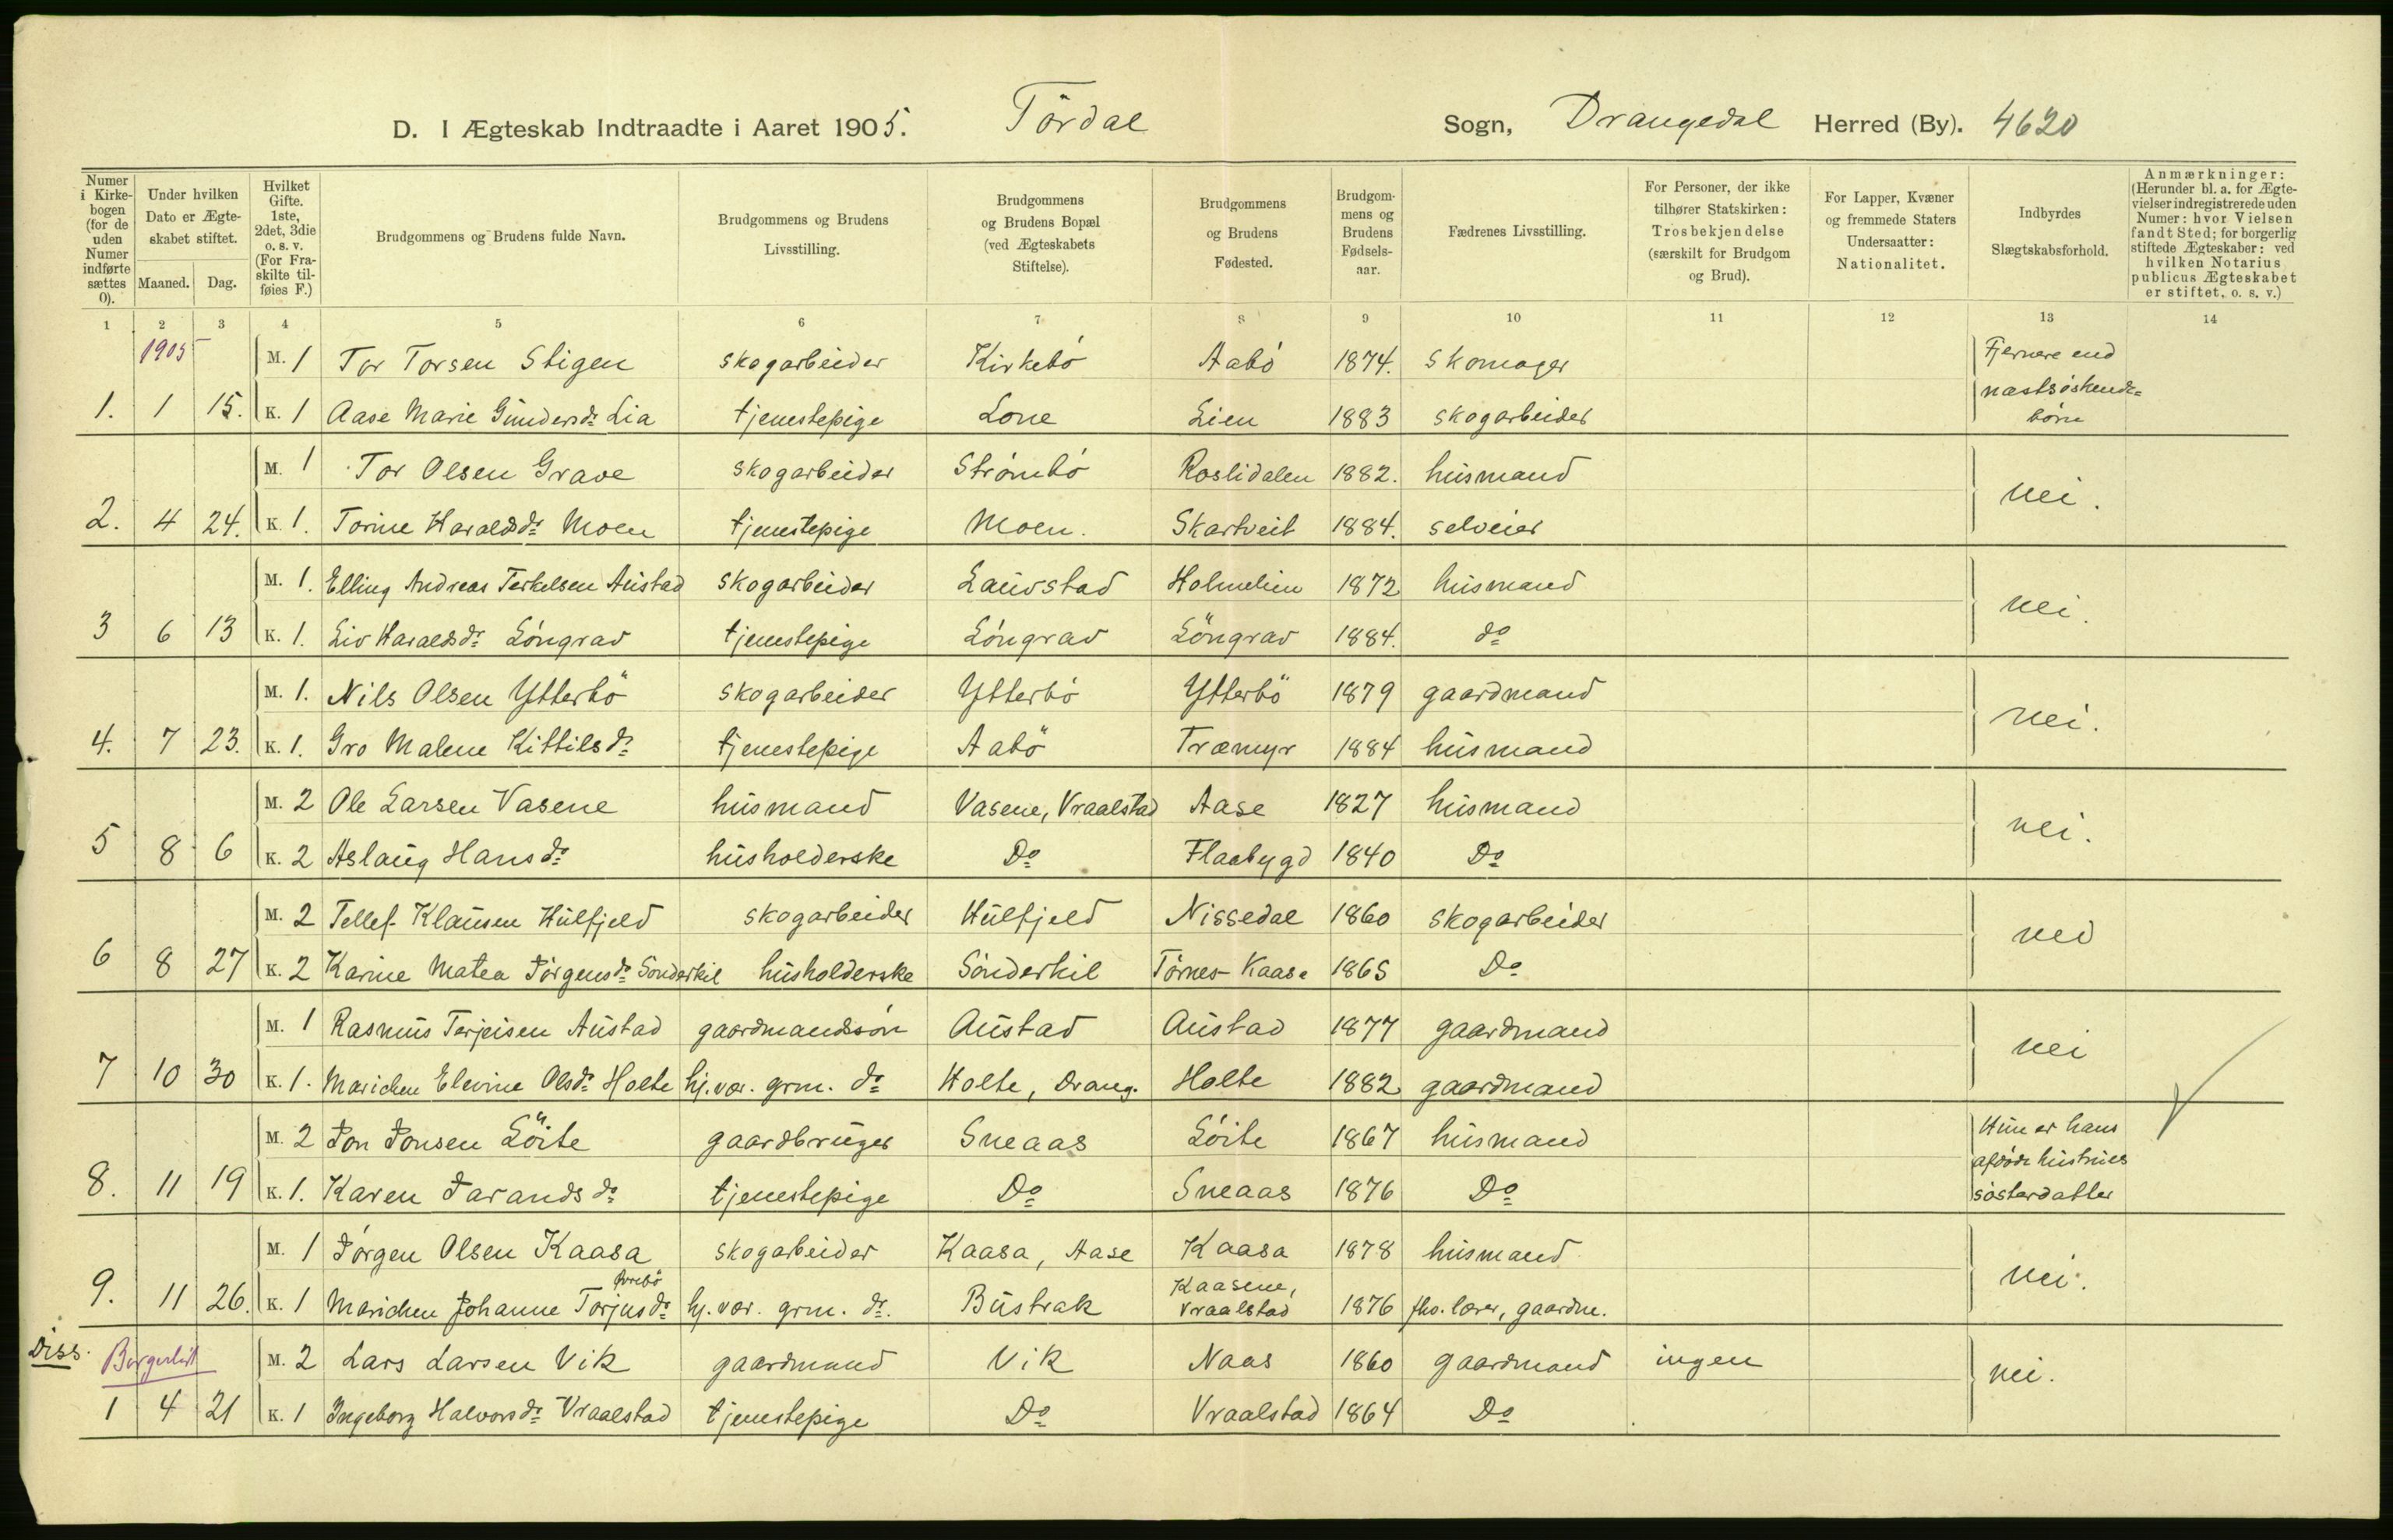 D. I Ægteskab Indtraadte i Aaret 1905. Tördal Sogn, Drangedal Herred (By). 4620
Numer i Kirkebogen (for de uden Numer indførte sættes 0). | Under hvilken Dato er Ægteskabet stiftet. Maaned. Dag. | Hvilket Gifte. 1ste, 2det, 3die o. s. v. (For Fraskilte tilføies F.) | Brudgommens og Brudens fulde Navn. | Brudgommens og Brudens Livsstilling. | Brudgommens og Brudens Bopæl (ved Ægteskabets Stiftelse). | Brudgommens og Brudens Fødested. | Brudgommens og Brudens Fødselsaar. | Fædrenes Livsstilling. | For Personer, der ikke tilhører Statskirken: Trosbekjendelse (særskilt for Brudgom og Brud). | For Lapper, Kvæner og fremmede Staters Undersaatter: Nationalitet. | Indbyrdes Slægtskabsforhold. | Anmærkninger: (Herunder bl. a. for Ægtevielser indregistrerede uden Numer: hvor Vielsen fandt Sted; for borgerlig stiftede Ægteskaber: ved hvilken Notarius publicus Ægteskabet er stiftet, o. s. v.)
1 2 3 4 5 6 7 8 9 10 11 12 13 14
1905 M. 1 Tor Torsen Stigen skogarbeider Kirkebö Aabö 1874. skomager Fjernere end
næstsöskende=
1. 1 15. K. 1 Aase Marie Gundersdr Lia tjenestepige Lone Lien 1883 skogarbeider börn
M. 1 Tor Olsen Grave skogarbeider Strömbö Roslidalen 1882. husmand nei.
2. 4 24. K. 1. Torine Haraldsdr Moen tjenestepige Moen. Skartveit 1884. selveier
M. 1. Elling Andreas Terkelsen Austad skogarbeider Lauvstad Holmelien 1872 husmand nei.
3 6 13 K. 1. Liv Haraldsdr Löngrav tjenestepige Löngrav Löngrav 1884. do
M. 1. Nils Olsen Ytterbö skogarbeider Ytterbö Ytterbö 1879 gaardmand nei.
4. 7 23. K. 1. Gro Malene Kittilsdr tjenestepige Aabö Træmyr 1884 husmand
M. 2 Ole Larsen Vasene husmand Vasene, Vraalstad Aase 1827 husmand nei.
5 8 6 K. 2 Aslaug Hansdr husholderske Do Flaabygd 1840 Do
M. 2 Tellef Klausen Hulfjeld skogarbeider Hulfjeld Nissedal 1860 skogarbeider nei
6 8 27 K. 2 Karine Matea Jörgensdr Sönderkil husholderske Sönderkil Törnes-Kaase 1865 Do
M. 1 Rasmus Terjeisen Austad gaardmandssön Austad Austad 1877 gaardmand nei
7 10 30 K. 1. Marichen Elevine Olsdr Holte hj.vær. grm. dr Holte, Drang. Holte 1882 gaardmand
M. 2 Jon Jonsen Löite gaardbruger Sneaas Löite 1867 husmand Hun er hans
afdöde hustrues
8. 11 19 K. 1. Karen Jarandsdr tjenestepige Do Sneaas 1876 Do sösterdatter
M. 1 Jörgen Olsen Kaasa skogarbeider Kaasa, Aase Kaasa 1878 husmand nei.
Örrebö Kaasene,
9. 11 26. K. 1 Marichen Johanne Torjusdr hj. vær. grm. dr. Bustrak Vraalstad 1876 fhv. lærer, gaardm.
Diss. Borgerligt M. 2 Lars Larsen Vik gaardmand Vik Naas 1860 gaardmand ingen nei.
1 4 21 K. 1 Ingeborg Halvorsdr Vraalstad tjenestepige Do Vraalstad 1864 Do